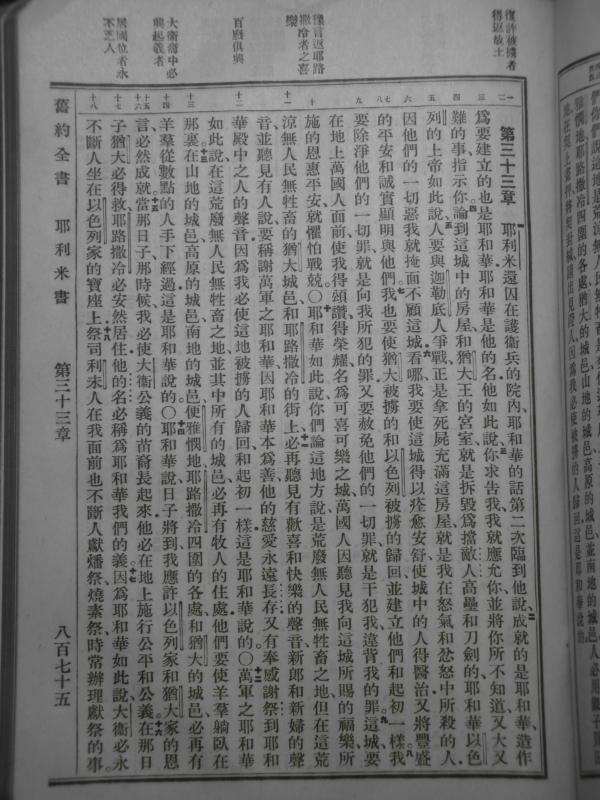 復許被擄者
得返故土
豫言返耶路
撒冷者之喜
樂
百廢俱興
大衛裔中必
興起義者
居國位者永
不乏人
第三十三章 耶利米還囚在護衛兵的院內、耶和華的話第二次臨到他說、成就的是耶和華、造作
爲要建立的也是耶和華、耶和華是他的名、他如此說、你求告我、我就應允你、並將你所不知道又大又
難的事指示你、論到這城中的房屋和猶大王的宮室、就是拆毀爲擋敵人高壘和刀劍的、耶和華以色
列的上帝如此說、人要與迦勒底人爭戰、正是拿死屍充滿這房屋、就是我在怒氣和忿怒中所殺的人、
因他們的一切惡、我就掩面不顧這城、看哪、我要使這城得以痊愈安舒、使城中的人得醫治、又將豐盛
的平安和誠實顯明與他們、我也要使猶大被擄的和以色列被擄的歸回、並建立他們和起初一樣、我
要除淨他們的一切罪、就是向我所犯的罪、又要赦免他們的一切罪、就是干犯我違背我的罪、這城要
在地上萬國人面前使我得頌讚、得榮耀、名爲可喜可樂之城、萬國人因聽見我向這城所賜的福樂所
施的恩惠平安、就懼怕戰兢○耶和華如此說、你們論這地方說、是荒廢無人民無牲畜之地、但在這荒
涼無人民無牲畜的猶大城邑、和耶路撒冷的街上、必再聽見有歡喜和快樂的聲音、新郎和新婦的聲
音、並聽見有人說、要稱謝萬軍之耶和華、因耶和華本爲善、他的慈愛永遠長存、又有奉感謝祭到耶和
華殿中之人的聲音、因爲我必使這地被擄的人歸回、和起初一樣、這是耶和華說的○萬軍之耶和華
如此說、在這荒廢無人民無牲畜之地、並其中所有的城邑、必再有牧人的住處、他們要使羊羣躺臥在
那裏、在山地的城邑、高原的城邑、南地的城邑、便雅憫地、耶路撒冷四圍的各處、和猶大的城邑、必再有
羊羣從數點的人手下經過、這是耶和華說的○耶和華說、日子將到、我應許以色列家和猶大家的恩
言、必然成就、當那日子那時候、我必使大衛公義的苗裔長起來、他必在地上施行公平和公義、在那日
子猶大必得救、耶路撒冷必安然居住、他的名必稱爲耶和華我們的義、因爲耶和華如此說、大衛必永
不斷人坐在以色列家的寶座上、祭司利未人在我面前也不斷人獻燔祭、燒素祭、時常辦理獻祭的事、
舊約全書 耶利米書 第三十三章 八百七十五